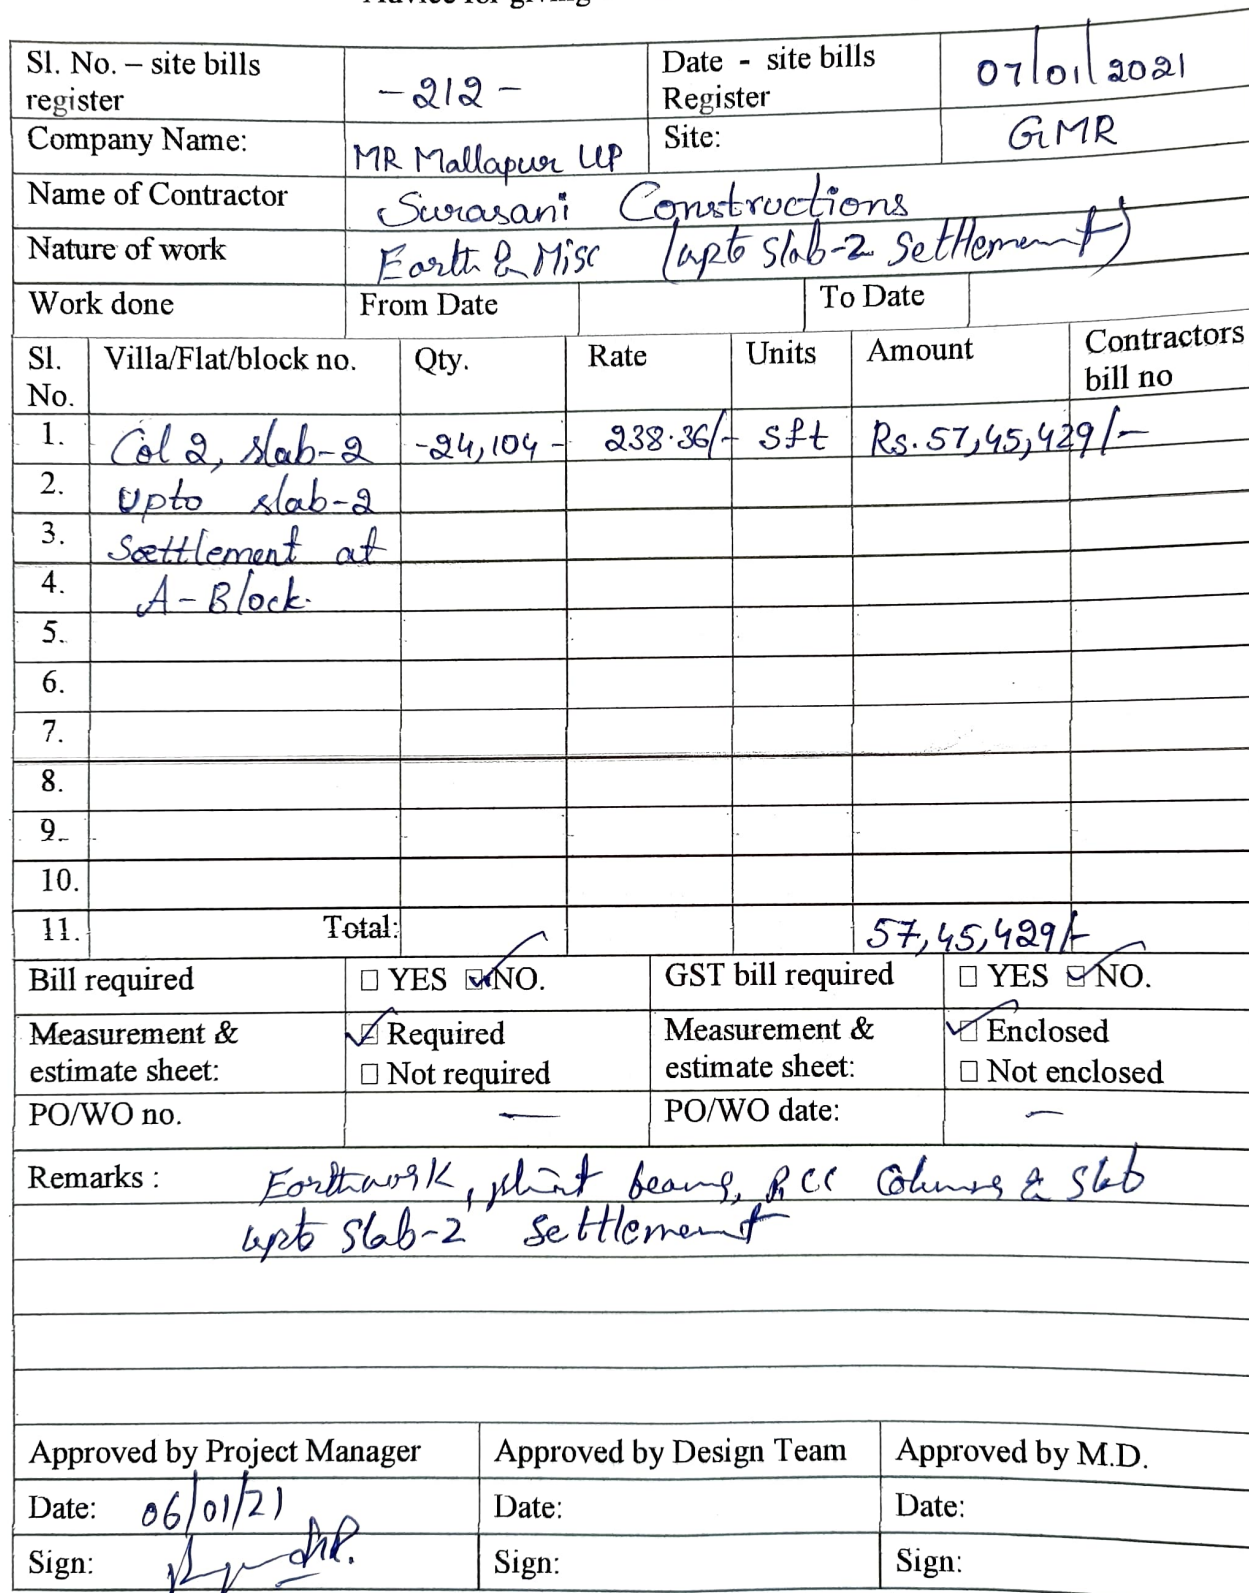 Advice for giving
Sl. No. – site bills register -212- Date - site bills Register 07/01/2021
Company Name: MR Mallapur LLP Site: GMR
Name of Contractor Surasani Constructions
Nature of work Earth & Misc (upto slab-2 Settlement)
Work done From Date To Date
Sl. No. Villa/Flat/block no. Qty. Rate Units Amount Contractors bill no
1. Col 2, slab-2 -24,104- 238.36/- Sft Rs. 57,45,429/-
2. Upto slab-2
3. Saettlement at
4. A-Block.
5.
6.
7.
8.
9.
10.
11. Total: 57,45,429/-
Bill required ☐ YES ☑ NO. GST bill required ☐ YES ☑ NO.
Measurement & estimate sheet: ☑ Required ☐ Not required Measurement & estimate sheet: ☑ Enclosed ☐ Not enclosed
PO/WO no. — PO/WO date: —
Remarks : Earthwork, plint beams, RCC Columns & Slab
upto Slab-2 Settlement
Approved by Project Manager Approved by Design Team Approved by M.D.
Date: 06/01/21 Date: Date:
Sign: Sign: Sign: